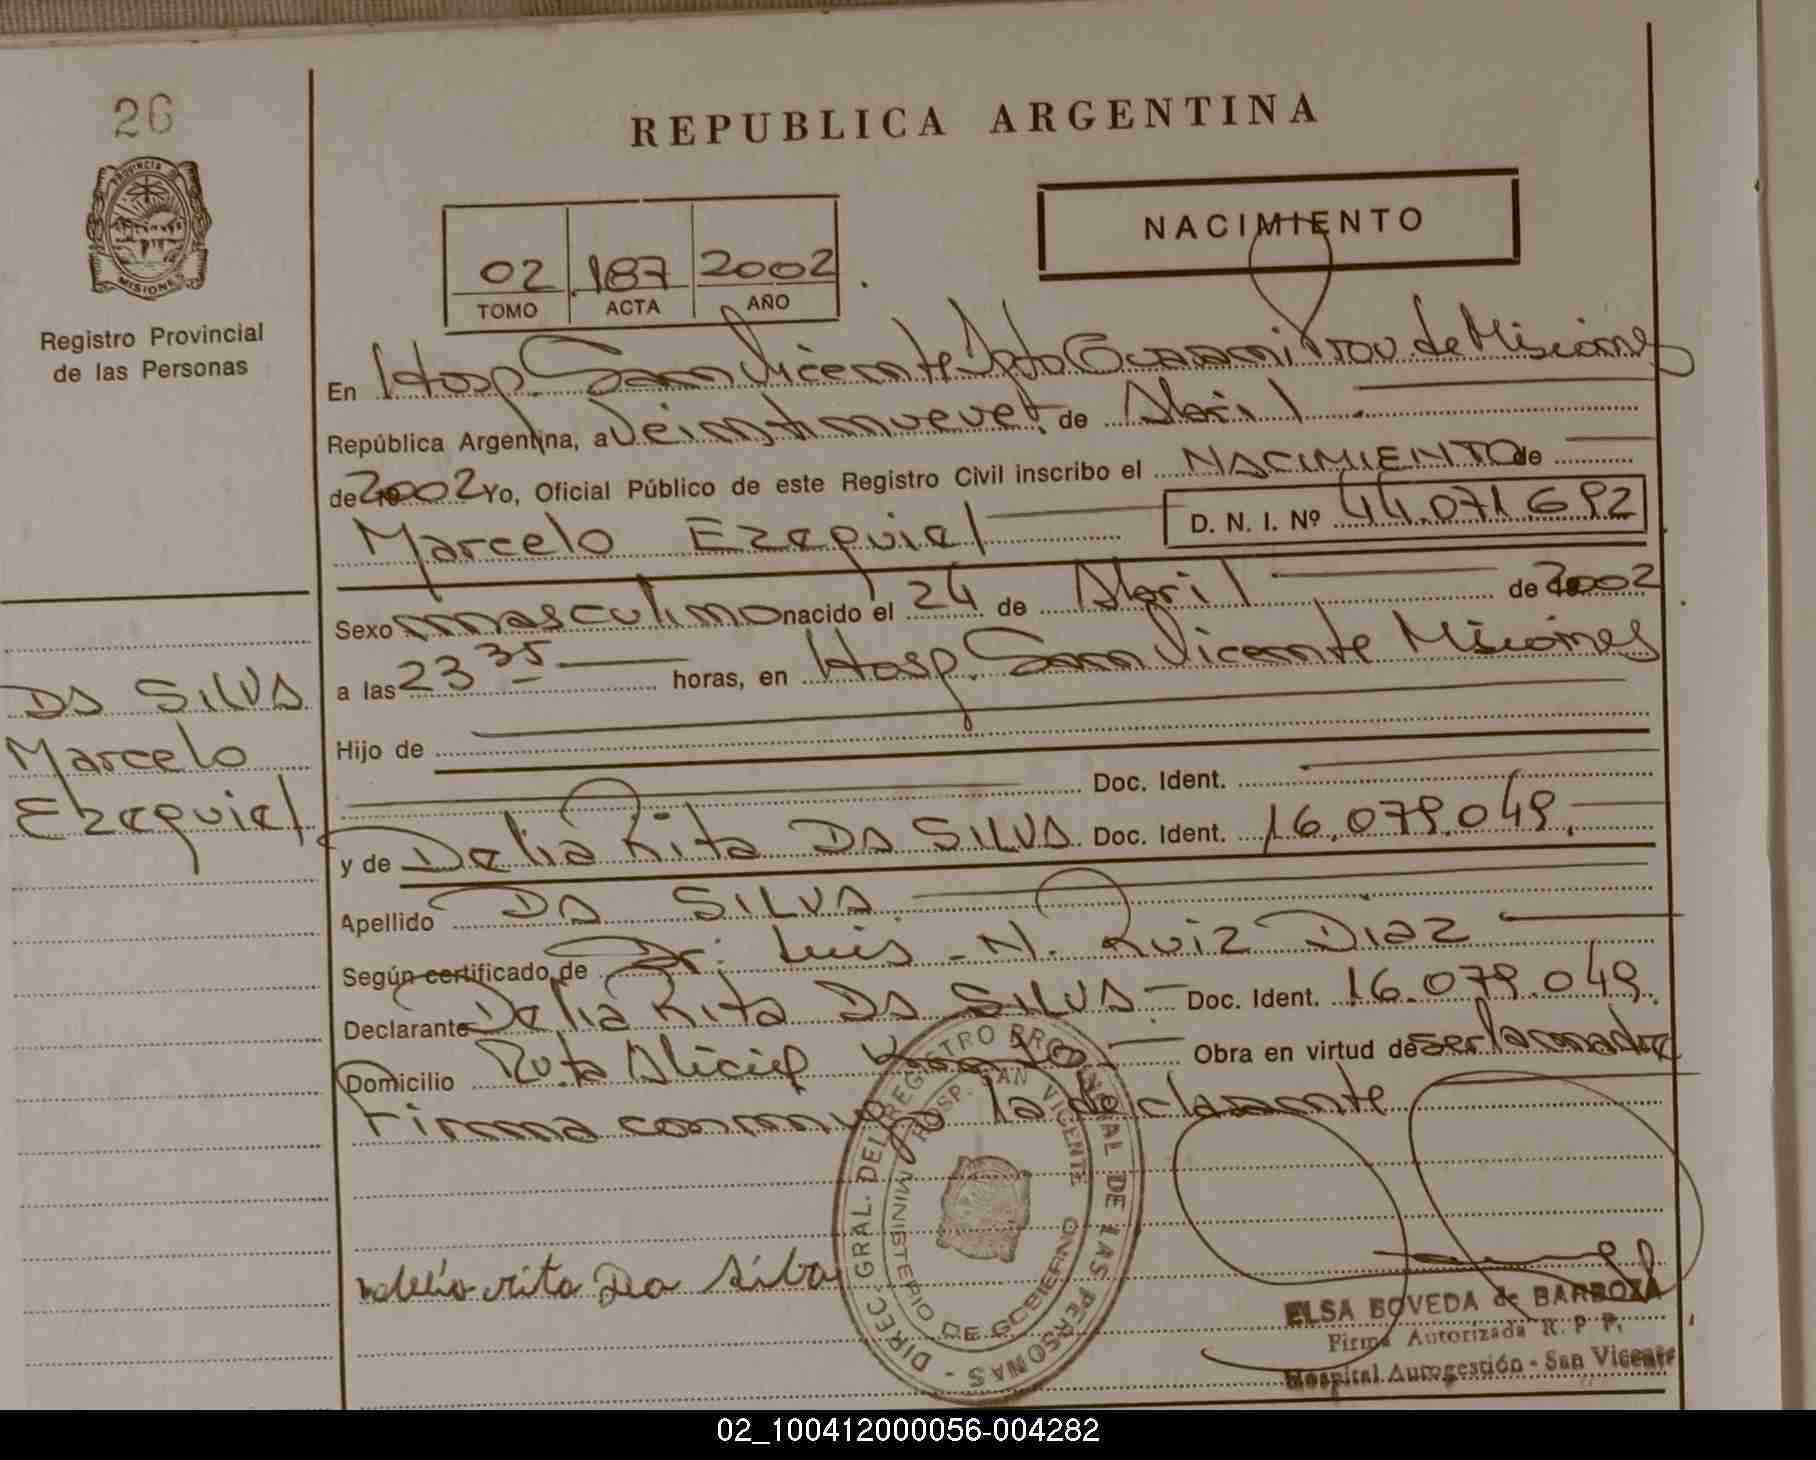 26
PROVINCIA DE
MISIONES
Registro Provincial
de las Personas
REPUBLICA ARGENTINA
NACIMIENTO
02 187 2002
TOMO ACTA AÑO
En Hosp. San Vicente Dpto Guarani Prov. de Misiones
República Argentina, a Veintinueve de Abril
de 2002 Yo, Oficial Público de este Registro Civil inscribo el NACIMIENTO de
Marcelo Ezequiel D. N. I. Nº 44.071.692
Sexo masculino nacido el 24 de Abril de 2002
a las 23 35 horas, en Hosp. San Vicente Misiones
Hijo de
Doc. Ident.
y de Delia Rita DA SILVA Doc. Ident. 16.079.049.
Apellido DA SILVA
Según certificado de Dr. Luis N. Ruiz Diaz
Declarante Delia Rita DA SILVA Doc. Ident. 16.079.049.
Domicilio Ruta Obra en virtud de ser la madre
Firma conmigo la declarante
DA SILVA
Marcelo
Ezequiel
delia rita Da Silva
DIREC. GRAL. DEL REGISTRO PROVINCIAL DE LAS PERSONAS
HOSP. SAN VICENTE
MINISTERIO DE GOBIERNO
ELSA BOVEDA de BARBOZA
Firma Autorizada R. P. P.
Hospital Autogestión - San Vicente
02_100412000056-004282